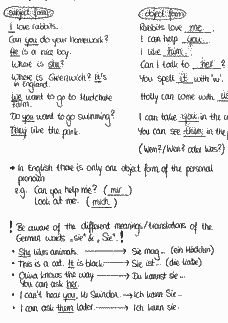 subject form
object form
I love rabbits.
Rabbits love me.
Can you do your homework?
I can help you.
He is a nice boy.
I like him.
Where is she?
Can I talk to her?
Where is Greenwich? It's
You spell it with "w".
in England.
We want to go to Hudshire
Holly can come with
Farm.
Do you want to go swimming?
I can take you in the
They like the park.
You can see them in the
(Wem?/Wen? oder Was?)
→ In English there is only one object form of the personal
pronoun
e.g. Can you help me? (mir)
Look at me. (mich)
! Be aware of the different meanings/translations of the
German words "sie" & "Sie". !
• She likes animals. → Sie mag... (ein Mädchen)
• This is a cat. It is black → Sie ist... (die Katze)
• Olivia knows the way → Du kannst sie...
You can ask her.
• I can't hear you, Mr Swindon. → Ich kann Sie...
• I can ask them later. → Ich kann sie.